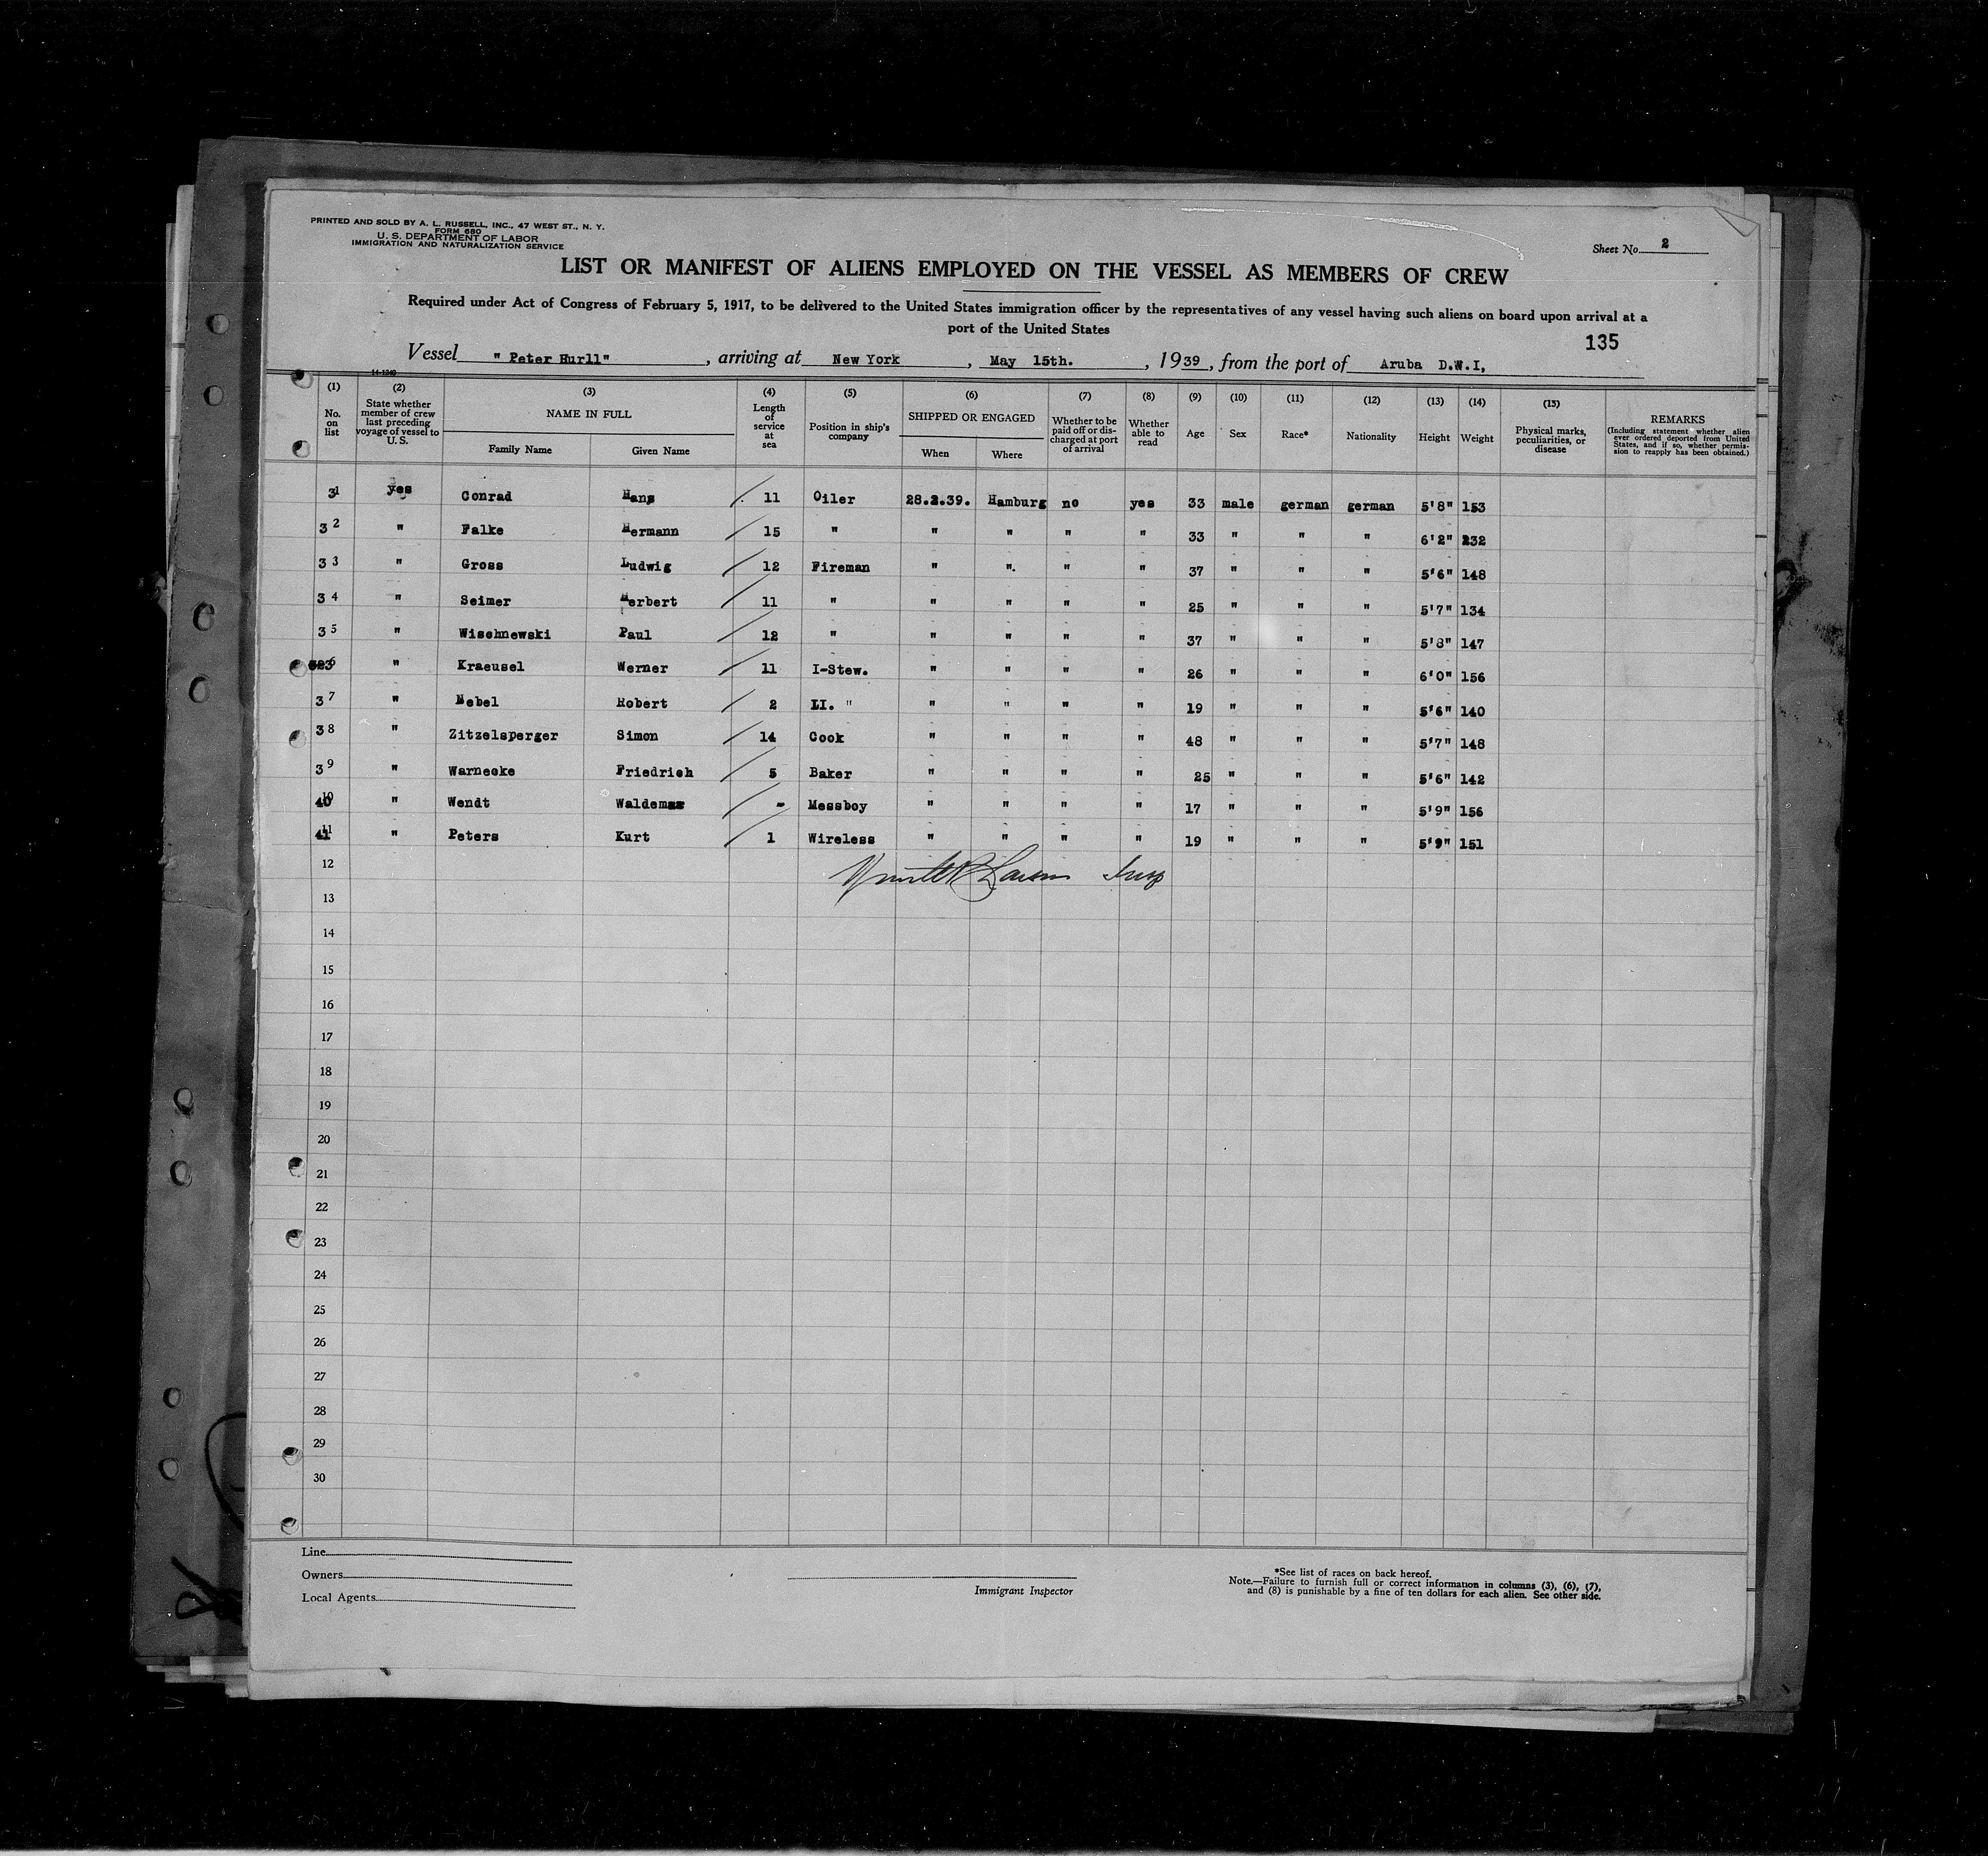 PRINTED AND SOLD BY A. L. RUSSELL, INC., 47 WEST ST., N. Y.
FORM 680
U. S. DEPARTMENT OF LABOR
IMMIGRATION AND NATURALIZATION SERVICE
Sheet No. 2
LIST OR MANIFEST OF ALIENS EMPLOYED ON THE VESSEL AS MEMBERS OF CREW
Required under Act of Congress of February 5, 1917, to be delivered to the United States immigration officer by the representatives of any vessel having such aliens on board upon arrival at a
port of the United States
135
Vessel "Peter Hurll", arriving at New York, May 15th., 1939, from the port of Aruba D.W.I,
14-1240
(1) (2) (3) (4) (5) (6) (7) (8) (9) (10) (11) (12) (13) (14) (15)
No. on list
State whether member of crew last preceding voyage of vessel to U. S.
NAME IN FULL
Family Name Given Name
Length of service at sea
Position in ship's company
SHIPPED OR ENGAGED
When Where
Whether to be paid off or discharged at port of arrival
Whether able to read
Age Sex Race* Nationality Height Weight
Physical marks, peculiarities, or disease
REMARKS
(Including statement whether alien ever ordered deported from United States, and if so, whether permission to reapply has been obtained.)
31 yes Conrad Hans 11 Oiler 28.2.39. Hamburg no yes 33 male german german 5'8" 153
32 " Falke Hermann 15 " " " " " 33 " " " 6'2" 232
33 " Gross Ludwig 12 Fireman " ". " " 37 " " " 5'6" 148
34 " Seimer Herbert 11 " " " " " 25 " " " 5'7" 134
35 " Wischnewski Paul 12 " " " " " 37 " " " 5'8" 147
36 " Kraeusel Werner 11 I-Stew. " " " " 26 " " " 6'0" 156
37 " Nebel Robert 2 II. " " " " " 19 " " " 5'6" 140
38 " Zitzelsperger Simon 14 Cook " " " " 48 " " " 5'7" 148
39 " Warnecke Friedrich 5 Baker " " " " 25 " " " 5'6" 142
40 " Wendt Waldemar - Messboy " " " " 17 " " " 5'9" 156
41 " Peters Kurt 1 Wireless " " " " 19 " " " 5'9" 151
12
13
14
15
16
17
18
19
20
21
22
23
24
25
26
27
28
29
30
Line
Owners
Local Agents
Immigrant Inspector
*See list of races on back hereof.
Note.—Failure to furnish full or correct information in columns (3), (6), (7),
and (8) is punishable by a fine of ten dollars for each alien. See other side.